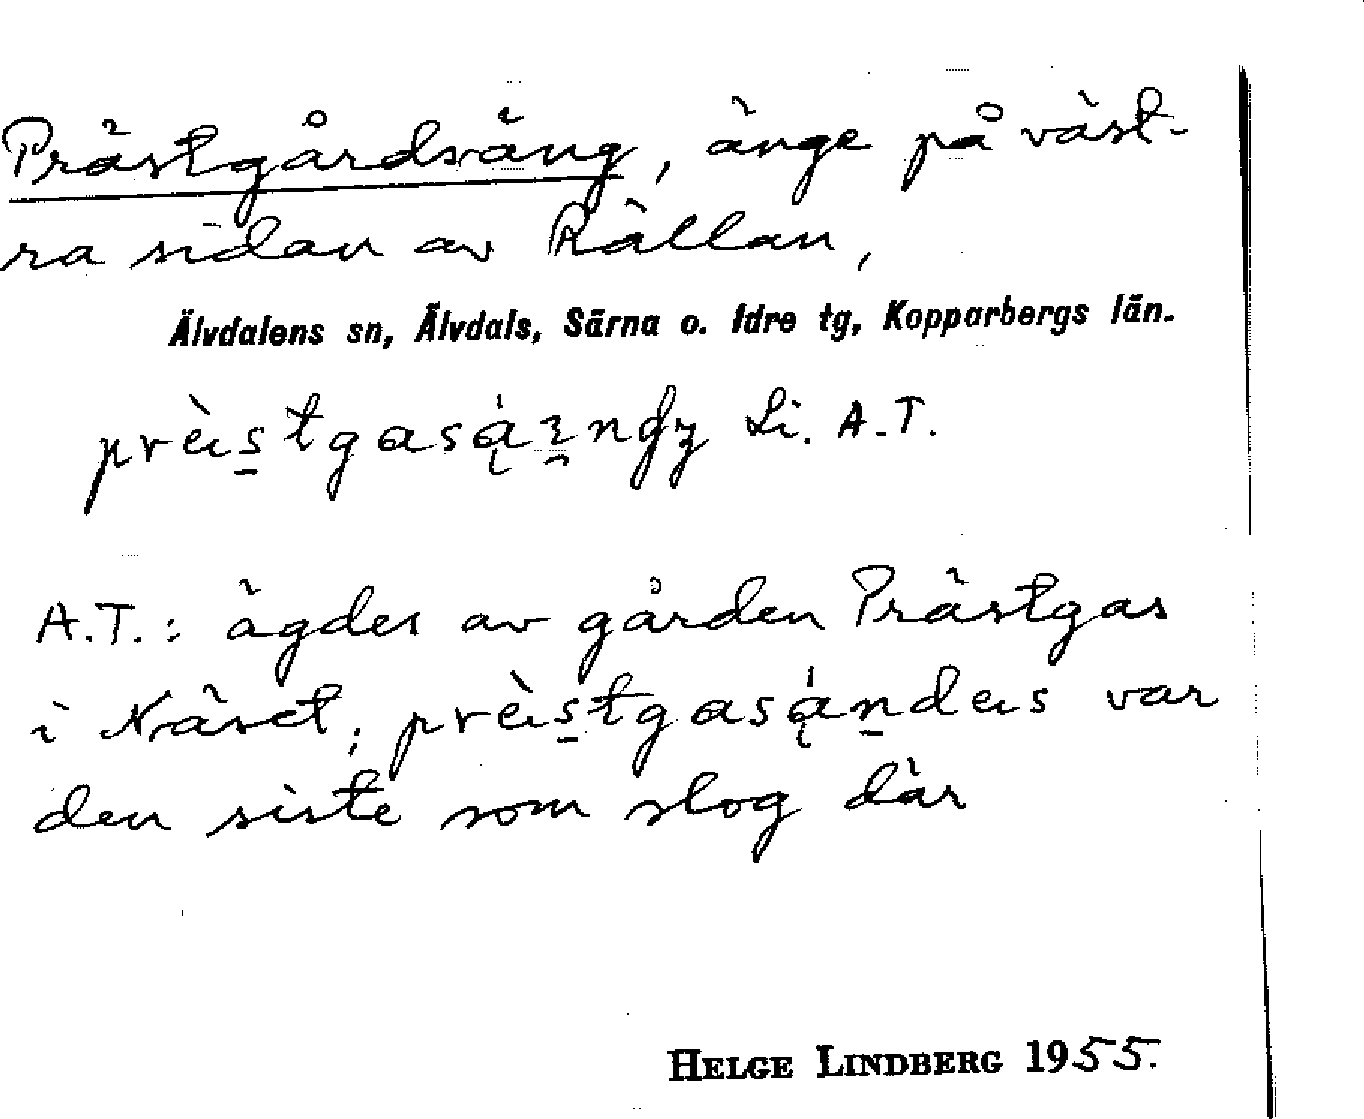 Prästgårdsväng, änge på väst-
ra sidan av Rällan,
Älvdalens sn, Älvdals, Särna o. Idre tg, Kopparbergs län.
Li. A.T.
A.T.: ägdes av gården Prästgas
i Näset, var
den siste som slog där
HELGE LINDBERG 1955.